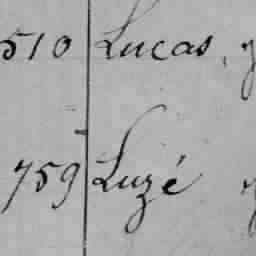 510 Lucas,
759 Luzé